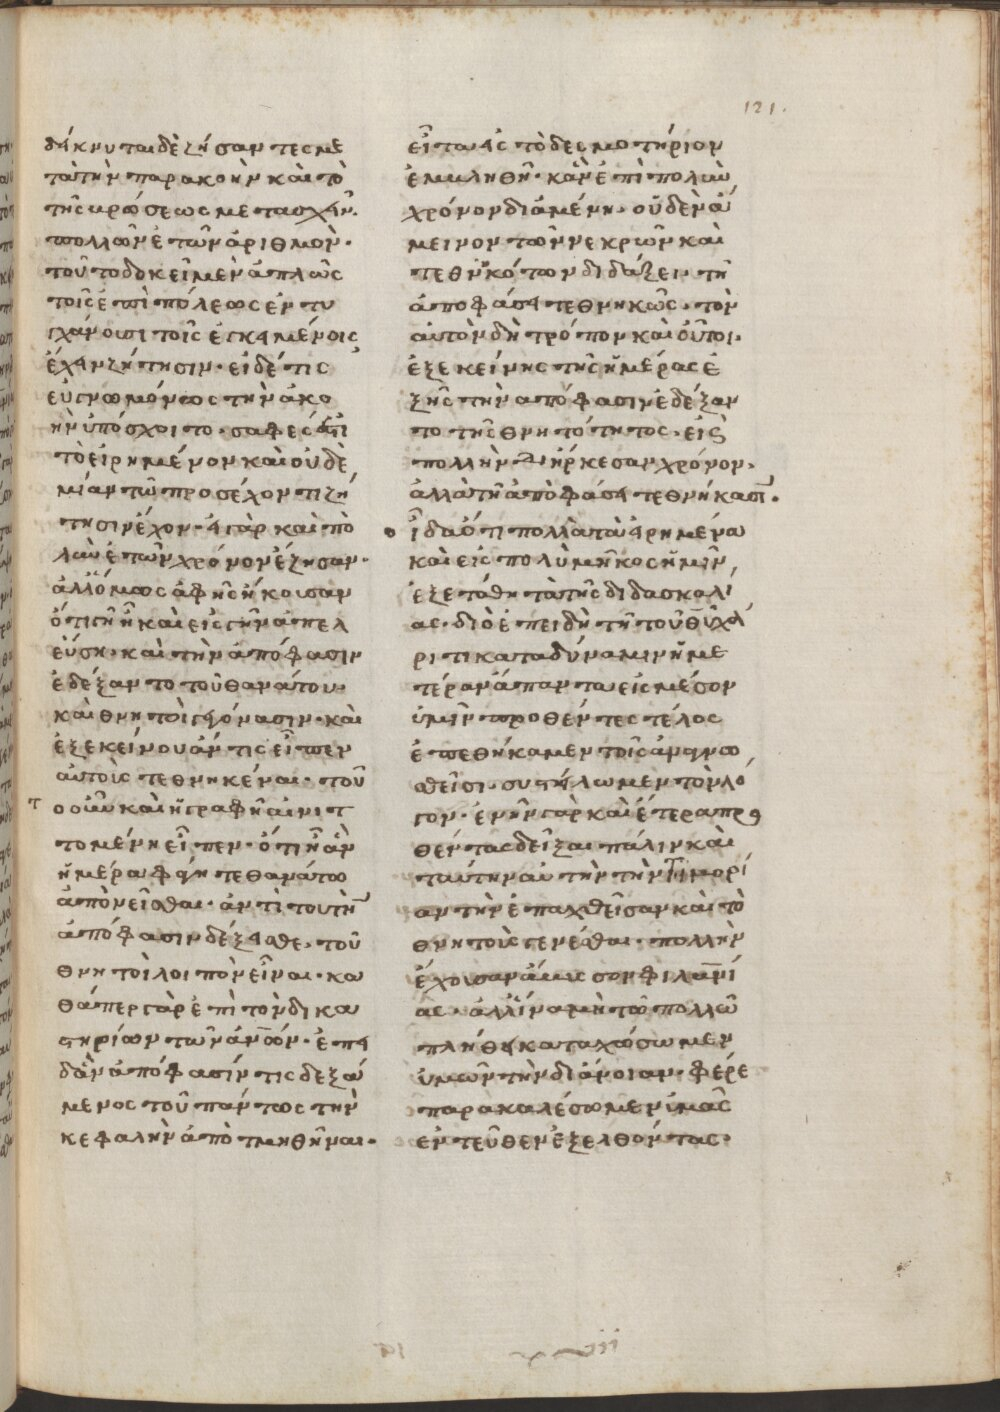 121.
δείκνυται δὲ ζήσαντες με
τὰ τὴν παρακοὴν καὶ τὸ
τῆς βρώσεως μετασχεῖν.
πολλῶν ἐτῶν ἀριθμὸν·
τοῦτο δοκεῖ μὲν ἁπλῶς
τοῖς ἐπὶ πόλεως ἐντυ
γχάνουσι τοῖς ἐγκειμένοις
ἔχειν ζήτησιν· εἰ δέ τις
εὐγνωμόνως τὴν ἀκο
ὴν ὑπόσχοιτο· σαφές ἐστι
τὸ εἰρημένον καὶ οὐδὲ
μίαν τῷ προσέχοντι ζή
τησιν ἔχον· εἰ γὰρ καὶ πὸ
λῶν ἐτῶν χρόνον ἔζησαν·
ἀλλ' ὅμως ἀφ' ἧς ἤκουσαν
ὅτι γῆ ἦ καὶ εἰς γῆν ἀπελ
εύση· καὶ τὴν ἀπόφασιν
ἐδέξαντο τοῦ θανάτου·
καὶ θνητοὶ γεγόνασιν· καὶ
ἐξ ἐκείνου ἄν τις εἶπεν
αὐτοὺς τεθνηκέναι· τοῦ
τ ο οὖν καὶ ἡ γραφὴ αἰνιτ
τομένη εἶπεν· ὅτι ἧ ἂν
ἡμέρα φάγητε θανάτω
ἀποθνεῖσθαι· ἀντὶ τοῦ τὴν
ἀπόφασιν δέξασθε, τοῦ
θνητοὶ λοιπὸν εἶναι· κα
θάπερ γὰρ ἐπὶ τῶν δικα
στηρίων τῶν ἀνῶν· ἐπει
δὰν ἀπόφασίν τις δεξά
μενος τοῦ πάντως τὴν
κεφαλὴν ἀποτμηθῆναι·
εἶτα εἰς τὸ δεσμωτήριον
ἐμβληθῆ· κἂν ἐπὶ πολὺν
χρόνον διαμένη· οὐδὲν ἄ
μεινον τῶν νεκρῶν καὶ
τεθνηκότων διδάξει τῆ
ἀποφάσει τεθνηκὼς· τὸν
αὐτὸν δὴ τρόπον καὶ οὗτοι·
ἐξ ἐκείνης τῆς ἡμέρας ἐ
ξῆς τὴν ἀπόφασιν ἐδέξαν
το τῆς θνητότητος· εἰς
πολλὴν διήρκεσαν χρόνον·
ἀλλὰ τῆ ἀποφάσει τεθνήκασι·
οἶδα ὅτι πολλὰ τὰ εἰρημένα
καὶ εἰς πολὺ μῆκος ἡμῖν
ἐξετάθη τὰ τῆς διδασκαλί
ας· διὸ ἐπειδὴ τῆ τοῦ θῦ χά
ριτι κατὰ δύναμιν ἡμε
τέραν ἅπαντα εἰς μέσον
ὑμῖν προθέντες τέλος
ἐπεθήκαμεν τοῖς ἀνεγνω
σθεῖσι· συστείλωμεν τὸν λό
γον· ἐνῆν γὰρ καὶ ἕτερα προ
θέντας δεῖξαι πάλιν καὶ
ταύτην αὐτὴν τὴν τιμορί
αν τὴν ἐπαχθεῖσαν καὶ τὸ
θνητοὺς γενέσθαι· πολλὴν
ἔχουσαν ἄμεισον φιλανί
ας· ἀλλ' ἵνα μὴ τῶ πολλῶ
πλήθει καταχώσωμεν
ὑμῶν τὴν διάνοιαν· φέρε
παρακαλέσωμεν ὑμᾶς
ἐντεῦθεν ἐξελθόντας·